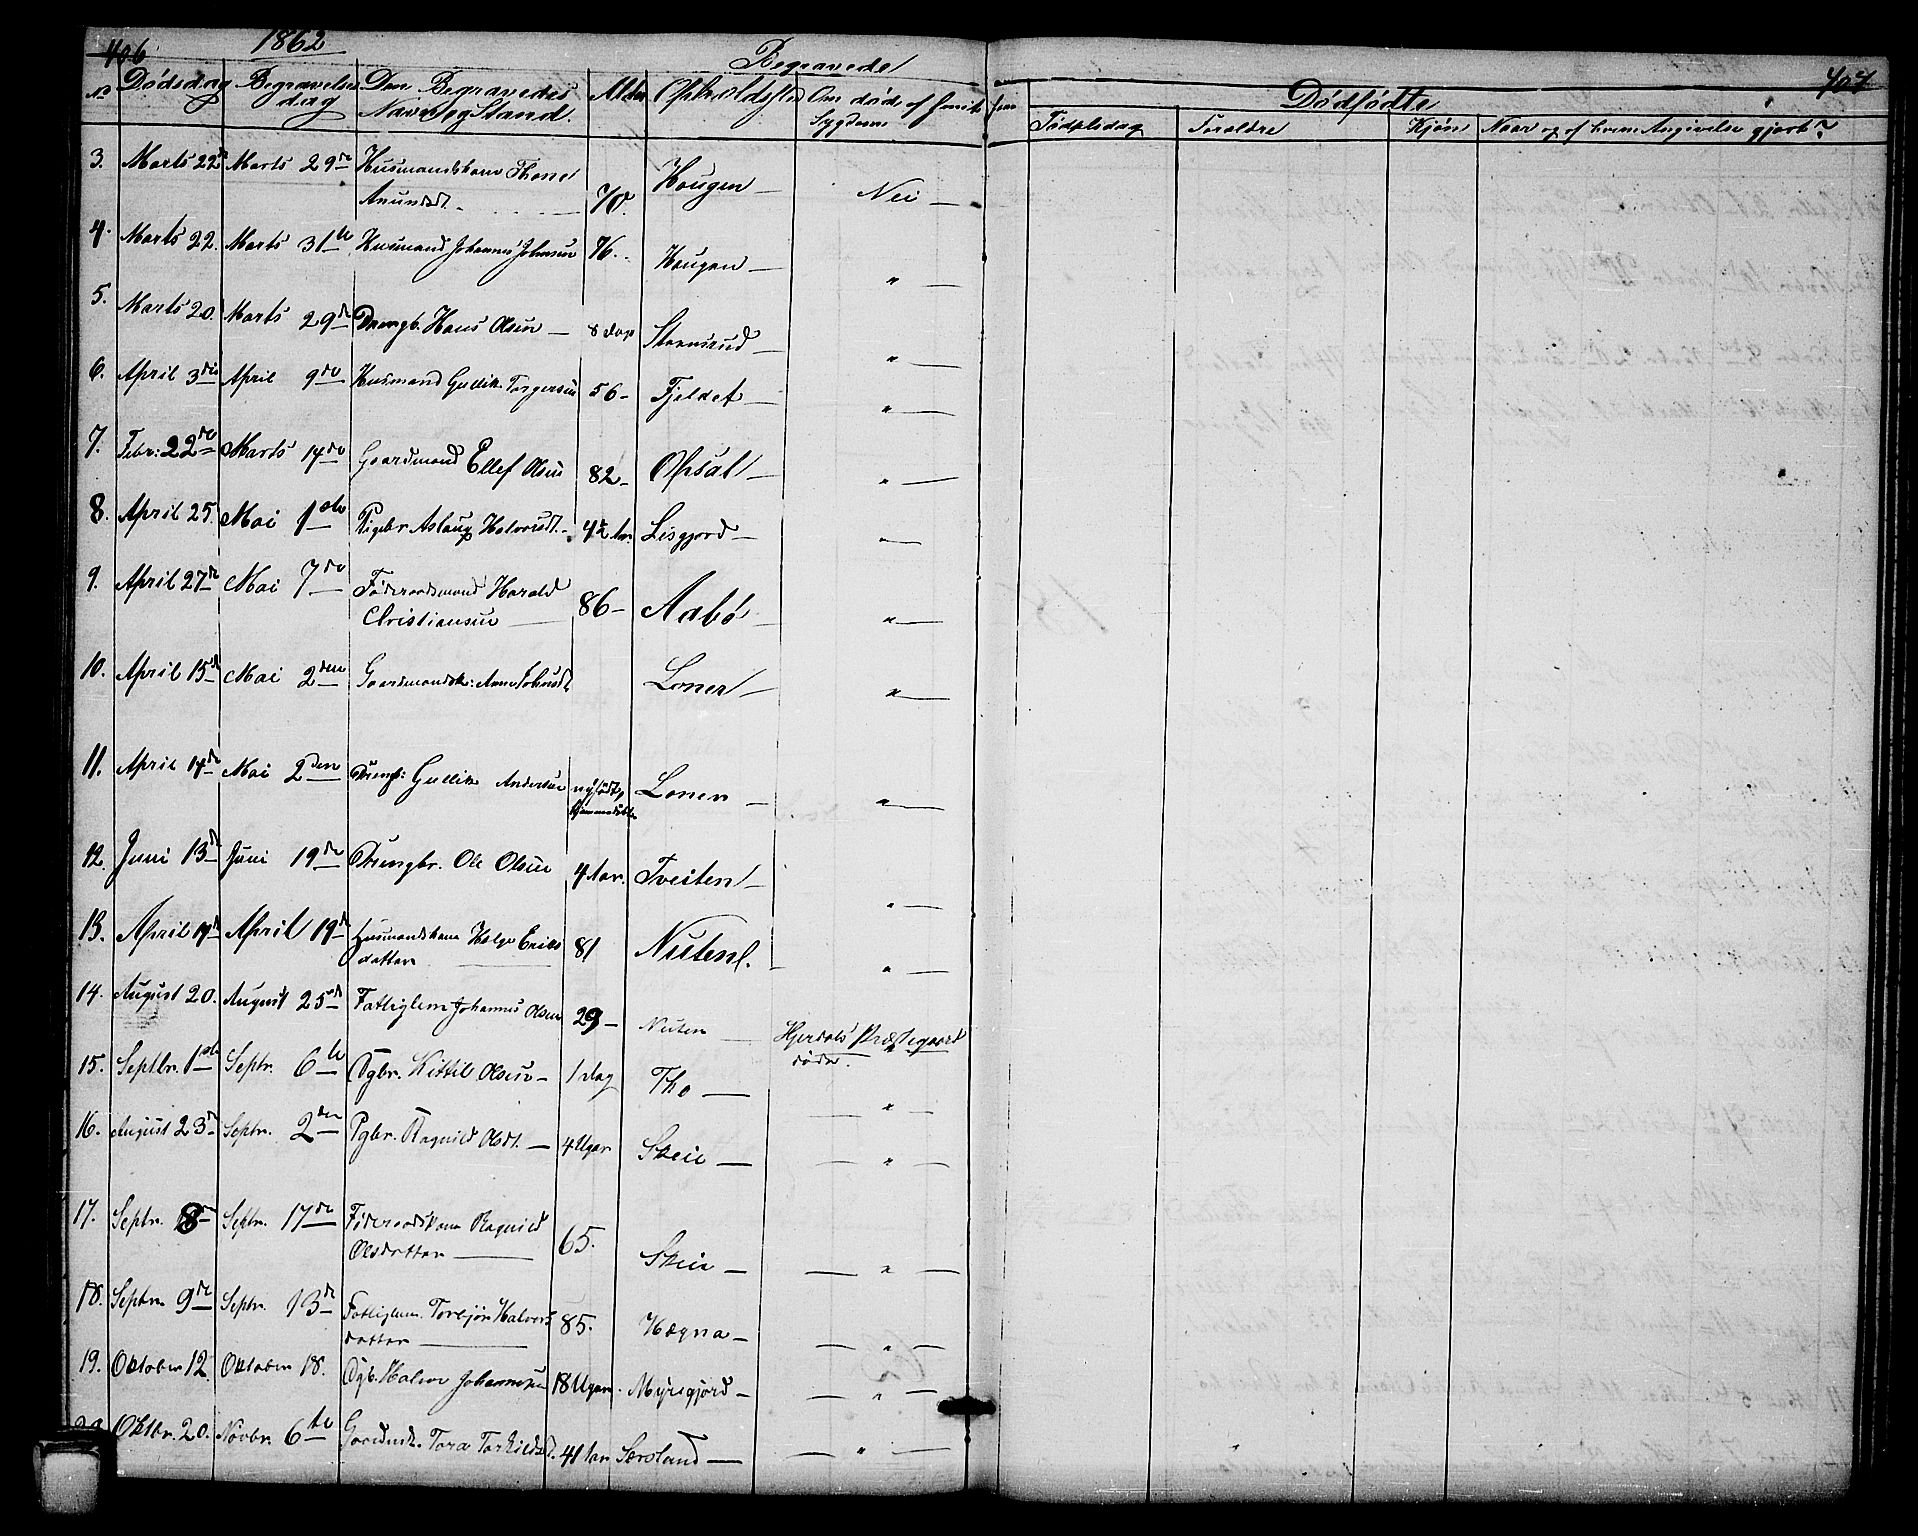 406 1862 Begravede
No Dødsdag Begravelsesdag Den Begravedes Navn og Stand. Alder Opholdssted Om død af smitsom Sygdom
3. Marts 22 Marts 29de Husmandskone Thone Anundsdt. 70. Hougen — Nei —
4. Marts 22. Marts 31te Husmand Johannes Johnsen 76. Hougen — " —
5. Marts 20. Marts 29de Drengb. Hans Olsen — 8 dage — " —
6. April 3die April 9de Husmand Gullik Torgersen 56 — Fjeldet — " —
7. Febr: 22de Marts 14de Gaardmand Ellef Olsen 82 — Opsal — " —
8. April 25. Mai 1ste Pigebr. Aslaug Halvorsdt. — 4½ Aar. Lisgjord — " —
9. April 27de Mai 7de Føderaadsmand Harald Christiansen — 86 — Aabø — " —
10. April 15de Mai 2den Gaardmandsk: Anne Johnsdt Lonen — " —
11. April 14de Mai 2den Drengb: Gullik Andersen nyfødt, hjemmedøbt Lonen — " —
12. Juni 13de Juni 19de Drengbr. Ole Olsen 4 Aar. Tveiten — " —
13. April 14de April 19de Husmandskone Helge Eriksdatter — 81 Nuten. " —
14. August 20. August 25de Fattiglem Johannes Olsen 29 — Nuten — Hjerdals Præstegaard døde.
15. Septbr. 1ste Septr. 6te Dgbr. Kittil Olsen — 1 dag Tho — — " —
16. August 23de Septr. 2den Pgbr. Ragnild Olsdt. — 4 Uger Skeie — — " —
17. Septr. 8de Septr. 17de Føderaadskone Ragnild Olsdatter — 65. Skeie — — " —
18. Septr. 9de Septr. 13de Fattiglem. Torbjør Halvorsdatter — 85. Hægna — — " —
19. Oktober 12. Oktober 18. Dgb. Halvor Johannesen 18 Uger. Myrsgjord — — " —
20. Oktbr. 20. Novbr. 6te Gaardmdk. Tora Torkildsdt. 41 Aar Særsland — — " —
407
Dødfødte
Fødselsdag Foreldre Kjøn Naar og af hvem Angivelse gjort?